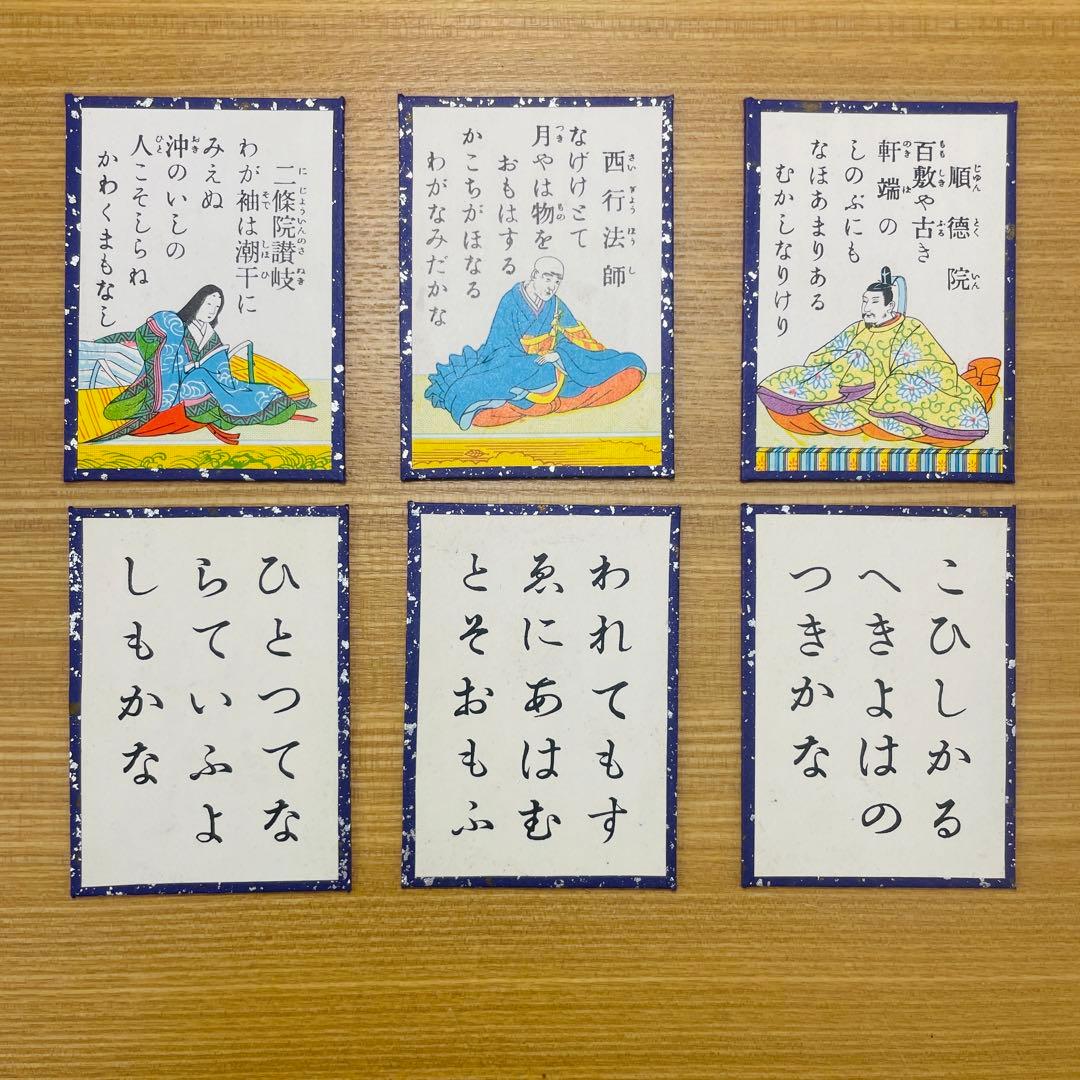 二條院讃岐
わが袖は潮干に
みえぬ
沖のいしの
人こそしらね
かわくまもなし
西行法師
なげけとて
月やは物を
おもはする
かこちがほなる
わがなみだかな
順德院
百敷や古き
軒端の
しのぶにも
なほあまりある
むかしなりけり
ひとつてな
らていふよ
しもかな
われてもす
ゑにあはむ
とそおもふ
こひしかる
へきよはの
つきかな